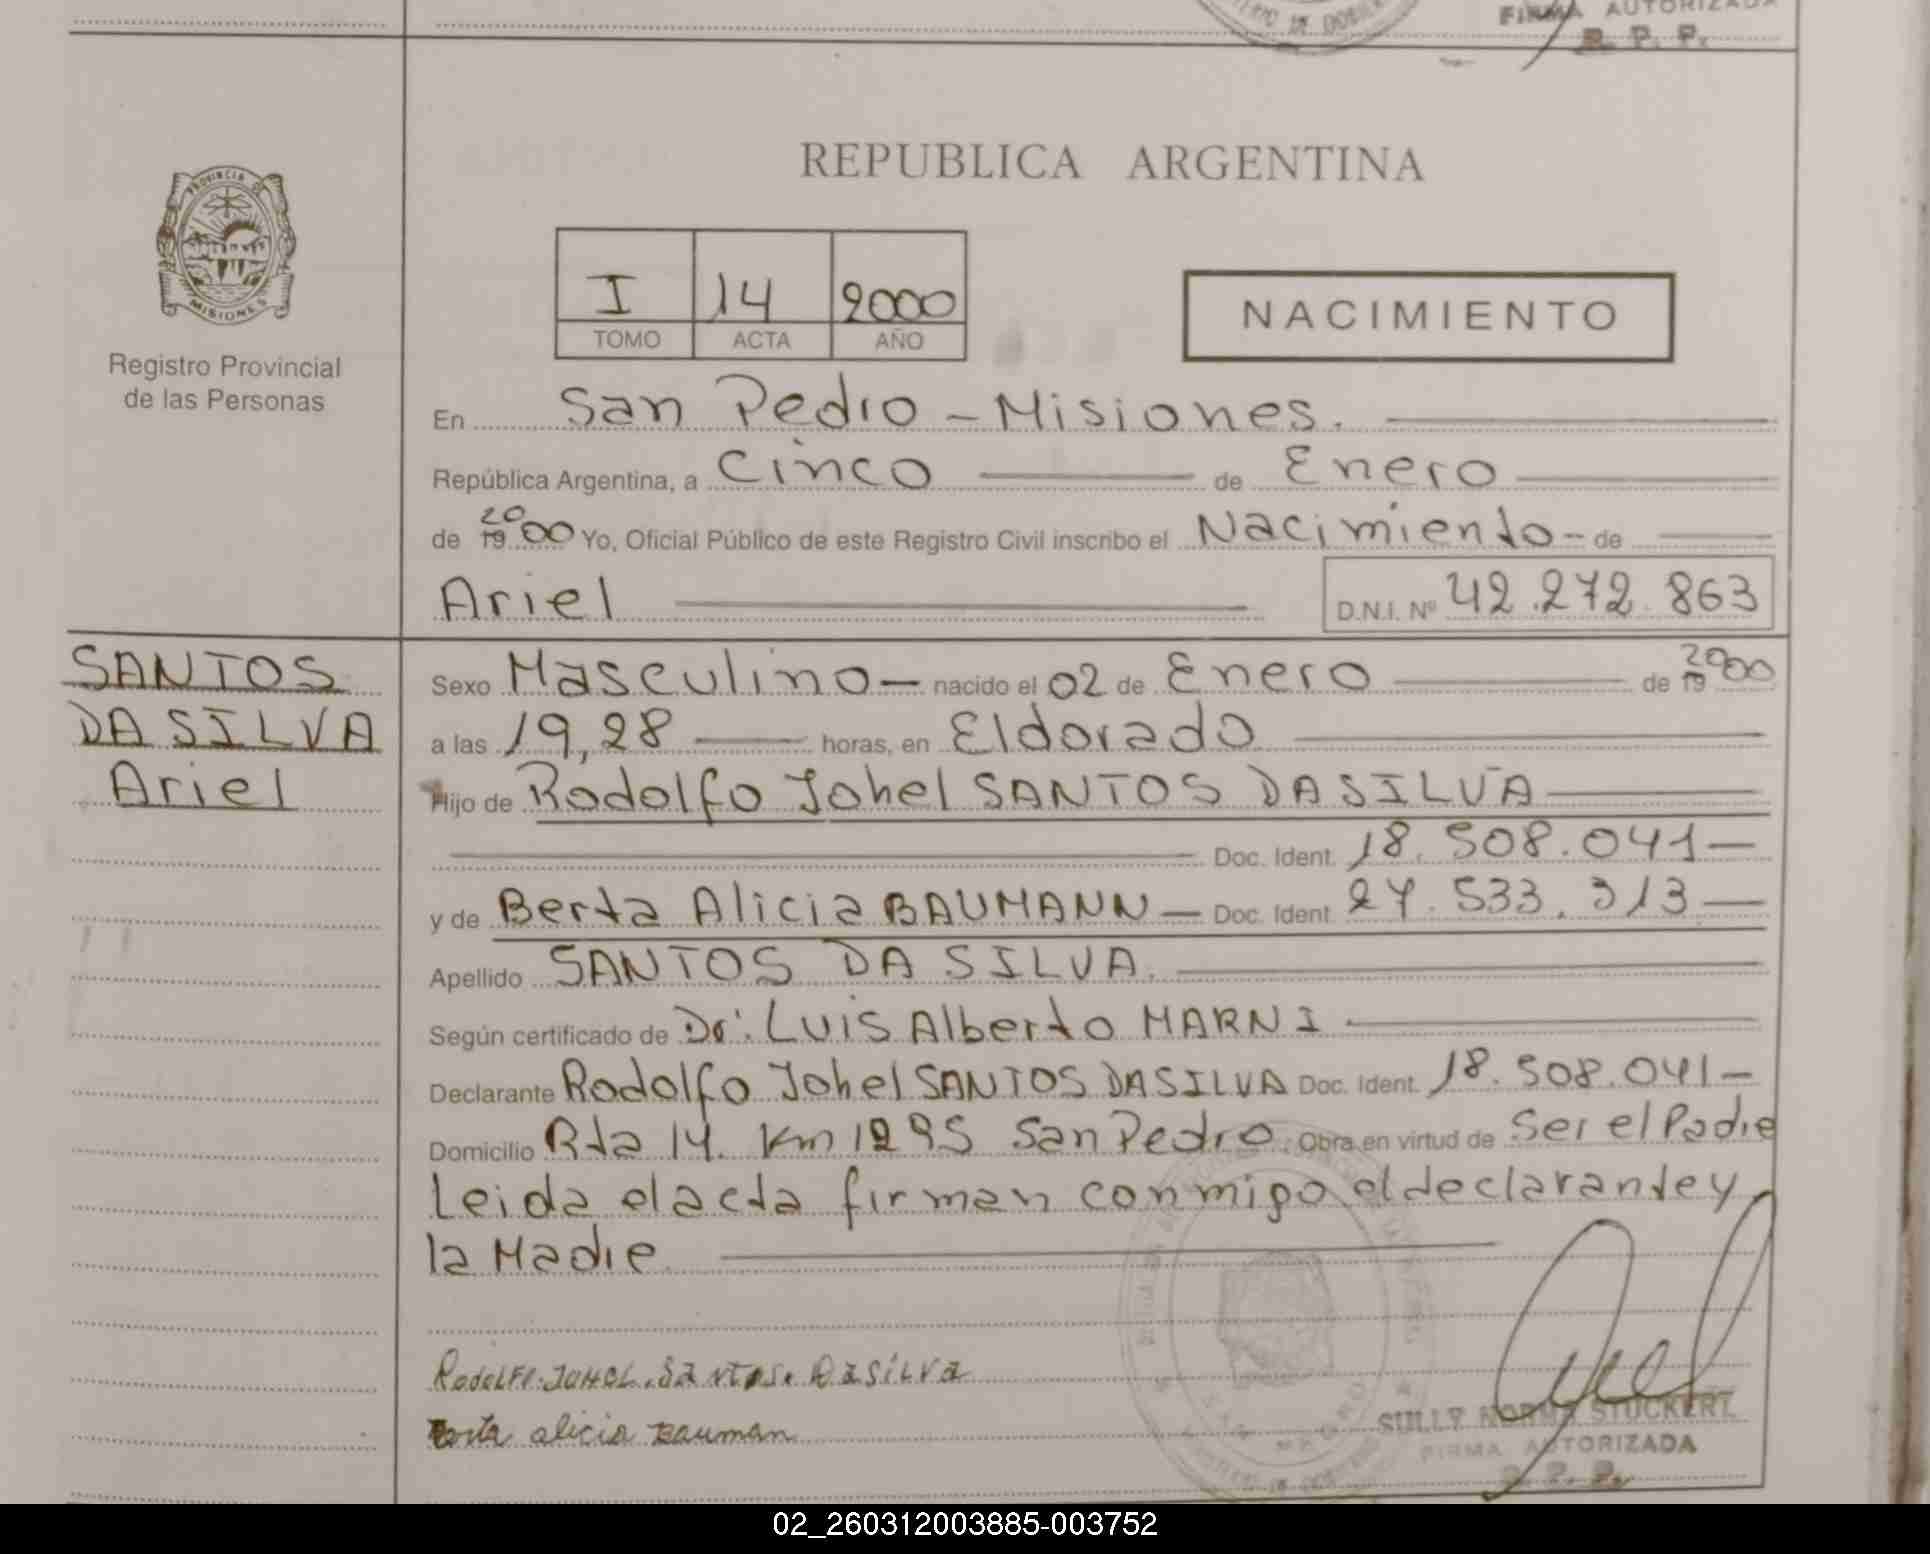 FIRMA AUTORIZADA
R. P. P.
REPUBLICA ARGENTINA
PROVINCIA D
MISIONES
Registro Provincial
de las Personas
I 14 2000
TOMO ACTA AÑO
NACIMIENTO
En San Pedro - Misiones.
República Argentina, a Cinco de Enero
de 19 2000 Yo, Oficial Público de este Registro Civil inscribo el Nacimiento - de
Ariel D.N.I. Nº 42.272.863
SANTOS
DA SILVA
Ariel
Sexo Masculino - nacido el 02 de Enero de 19 2000
a las 19,28 horas, en Eldorado
Hijo de Rodolfo Johel SANTOS DA SILVA
Doc. Ident. 18.508.041-
y de Berta Alicia BAUMANN - Doc. Ident. 27.533.313-
Apellido SANTOS DA SILVA.
Según certificado de Dr: Luis Alberto MARNI
Declarante Rodolfo Johel SANTOS DA SILVA Doc. Ident. 18.508.041-
Domicilio Rta 14. Km 1295 San Pedro. Obra en virtud de Ser el Padre
Leida el acta firman conmigo el declarante y
la Madre
Rodolfo JOHEL. Santos. Dasilva
Berta alicia Bauman
SULLY NORMA STUCKERT
FIRMA AUTORIZADA
R. P. P.
02_260312003885-003752